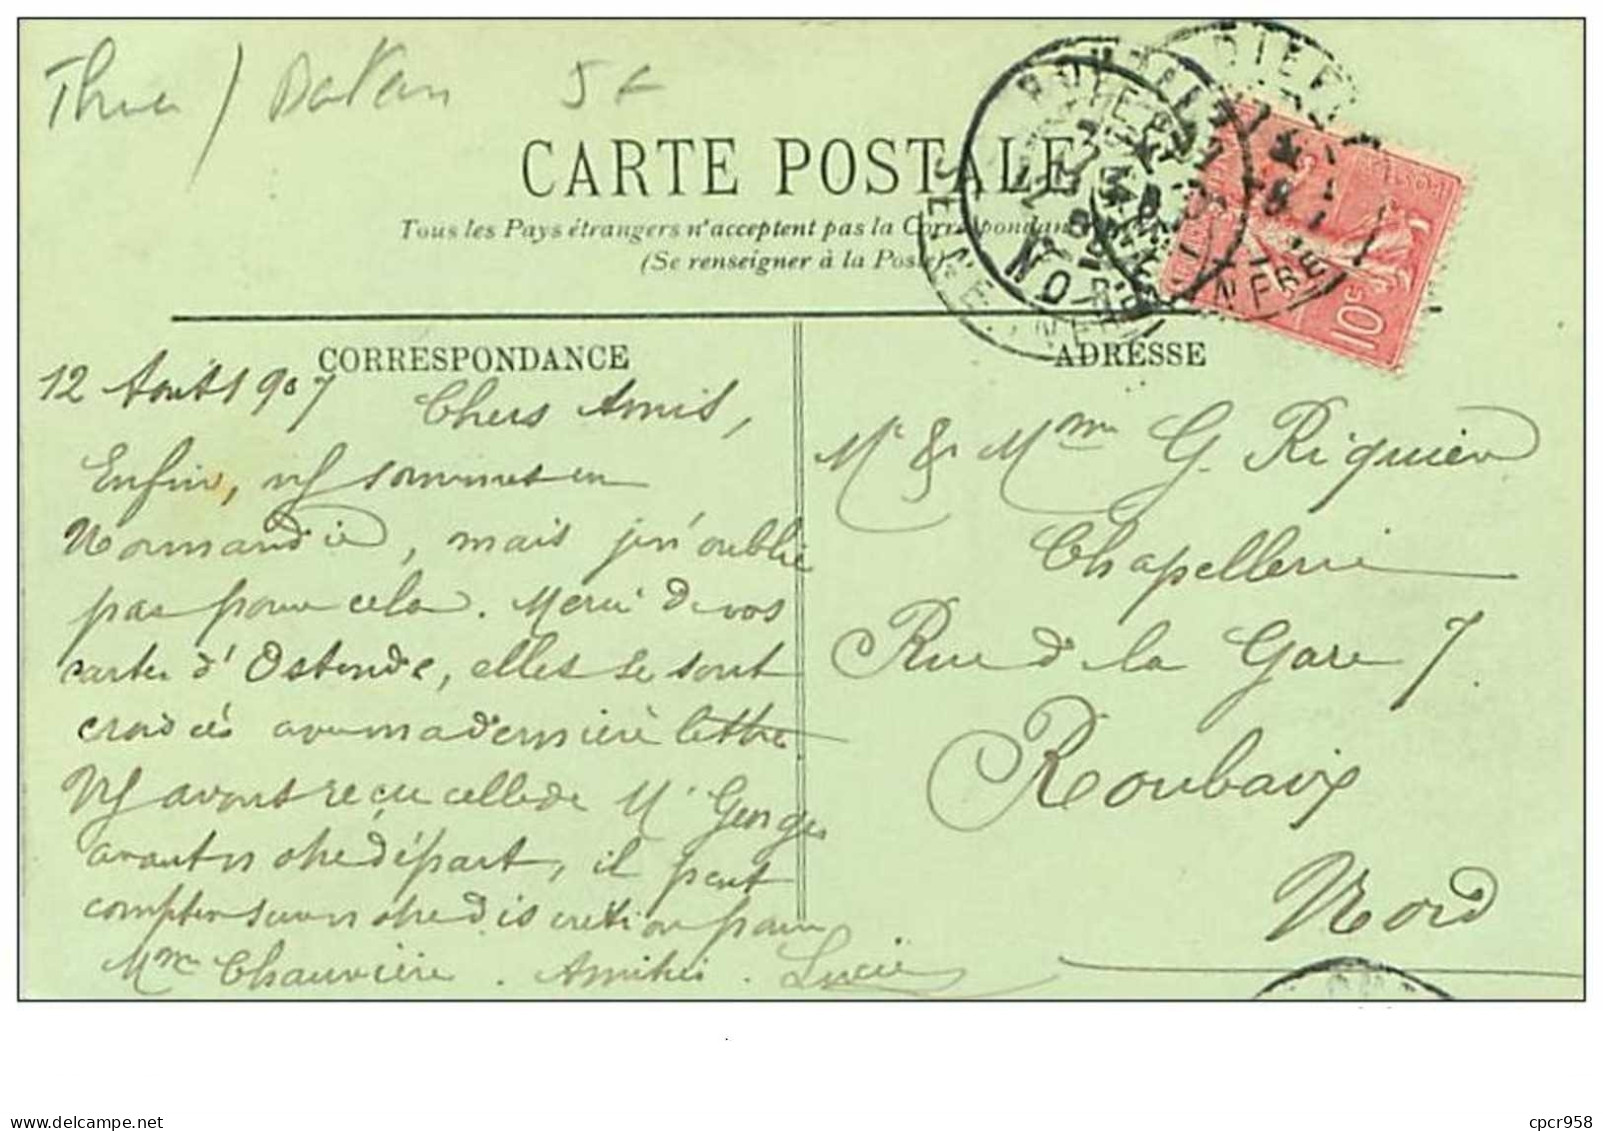 5f
CARTE POSTALE
Tous les Pays étrangers n'acceptent pas la Correspondan
(Se renseigner à la Poste)
CORRESPONDANCE
ADRESSE
10c
12 Août 1907
Chers Amis,
Enfin, ns sommes en
Normandie, mais je n'oublie
pas pour cela. Merci de vos
cartes d'Ostende, elles se sont
croisées avec ma dernière lettre
Ns avons reçu celle de Mr Georges
avant notre départ, il peut
compter sur notre discrétion pour
Mme Chauvière. Amitiés. Lucie
Mr & Mme G. Riquier
Chapellerie
Rue de la Gare 7
Roubaix
Nord
delcampe.net
cpcr958